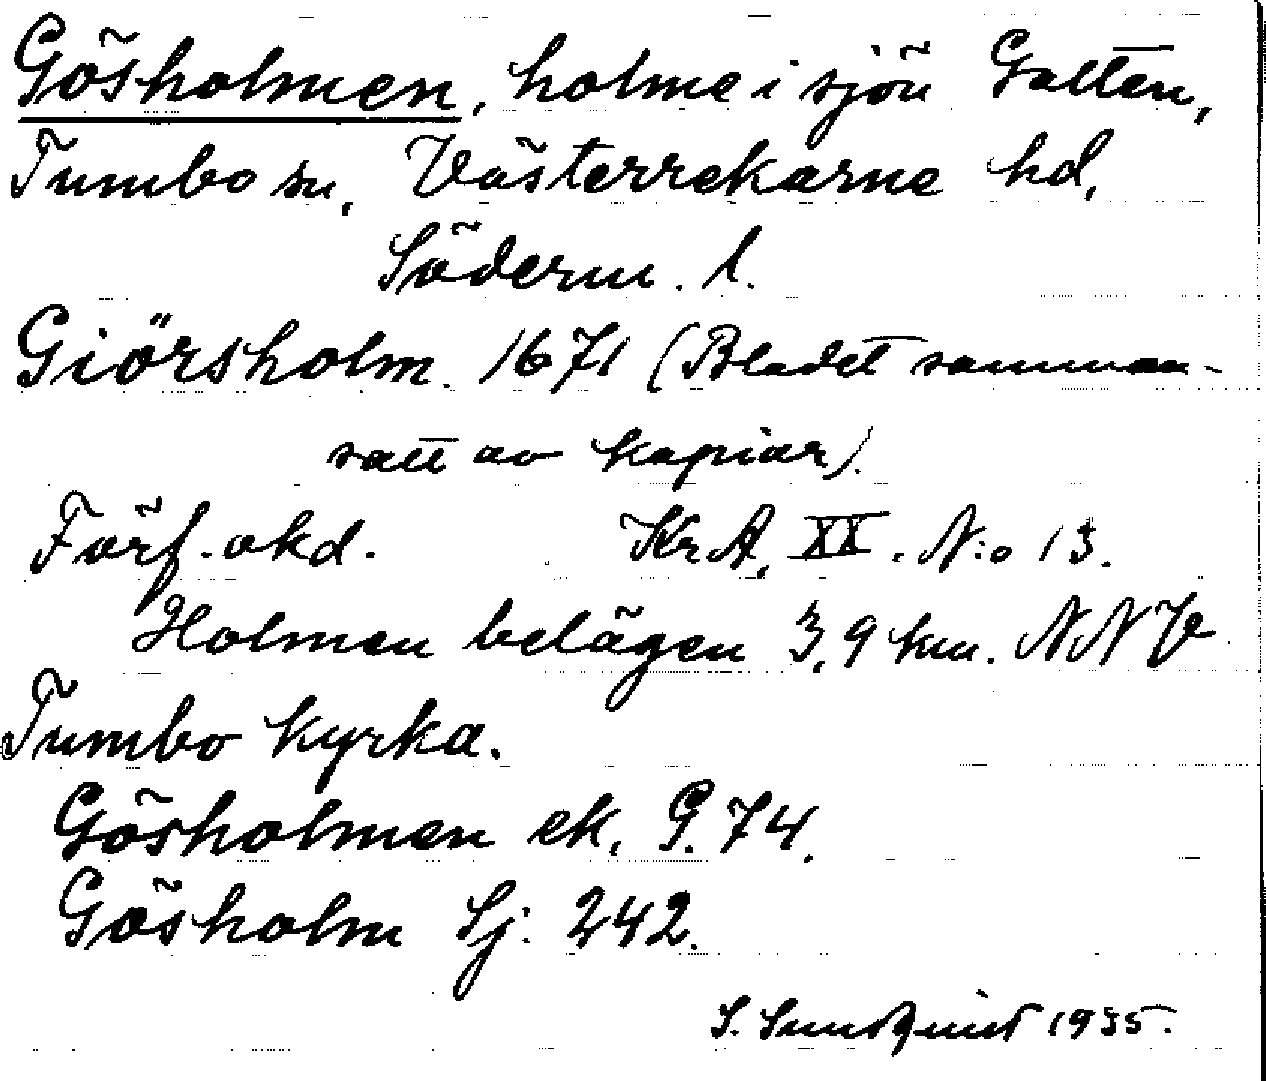 Gösholmen, holme i sjön Galten,
Tumbo sn, Västerrekarne hd,
Söderm. l.
Giörsholm. 1671 (Bladet samman-
satt av kopior).
Förf. okd. KrA, XX. N:o 13.
Holmen belägen 3,9 km. NNV
Tumbo kyrka.
Gösholmen ek. G. 74.
Gösholm Sj: 242.
S. Sundquist 1935.